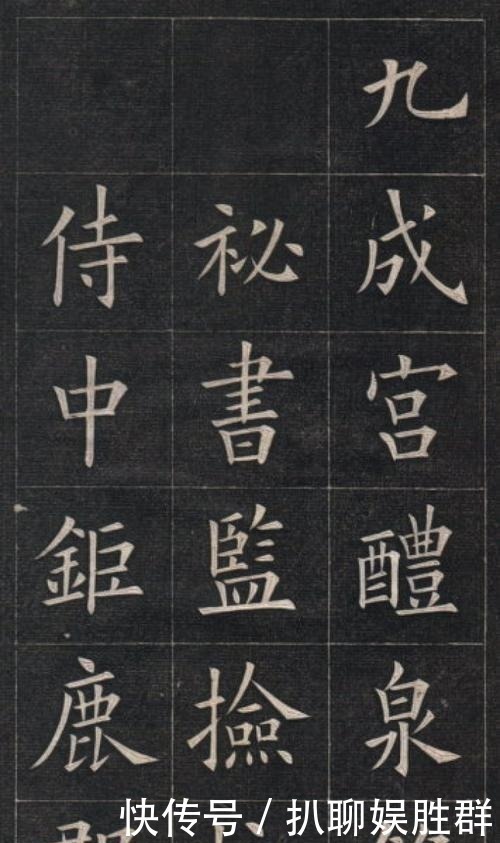 九成宮醴泉
祕書監撿
侍中鉅鹿
快传号 / 扒聊娱胜群